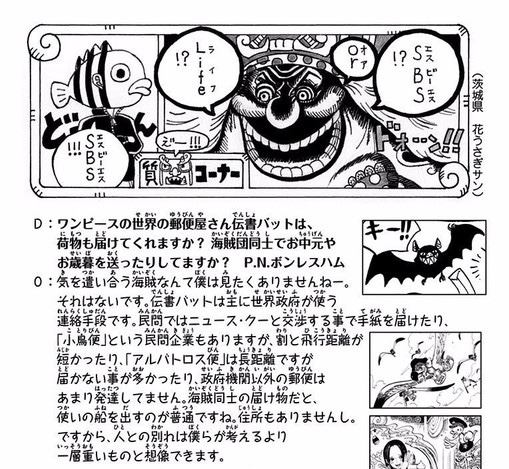 SBS!?
or
Life!?
SBS!!!
ど ん
ドォーン!!
えー!!!
質
コーナー
(茨城県 花うさぎサン)
D：ワンピースの世界の郵便屋さん伝書バットは、
荷物も届けてくれますか？ 海賊団同士でお中元や
お歳暮を送ったりしてますか？ P.N.ボンレスハム
O：気を遣い合う海賊なんて僕は見たくありませんねー。
それはないです。伝書バットは主に世界政府が使う
連絡手段です。民間ではニュース・クーと交渉する事で手紙を届けたり、
「小鳥便」という民間企業もありますが、割と飛行距離が
短かったり、「アルバトロス便」は長距離ですが
届かない事が多かったり、政府機関以外の郵便は
あまり発達してません。海賊同士の届け物だと、
使いの船を出すのが普通ですね。住所もありませんし。
ですから、人との別れは僕らが考えるより
一層重いものと想像できます。
キー!!